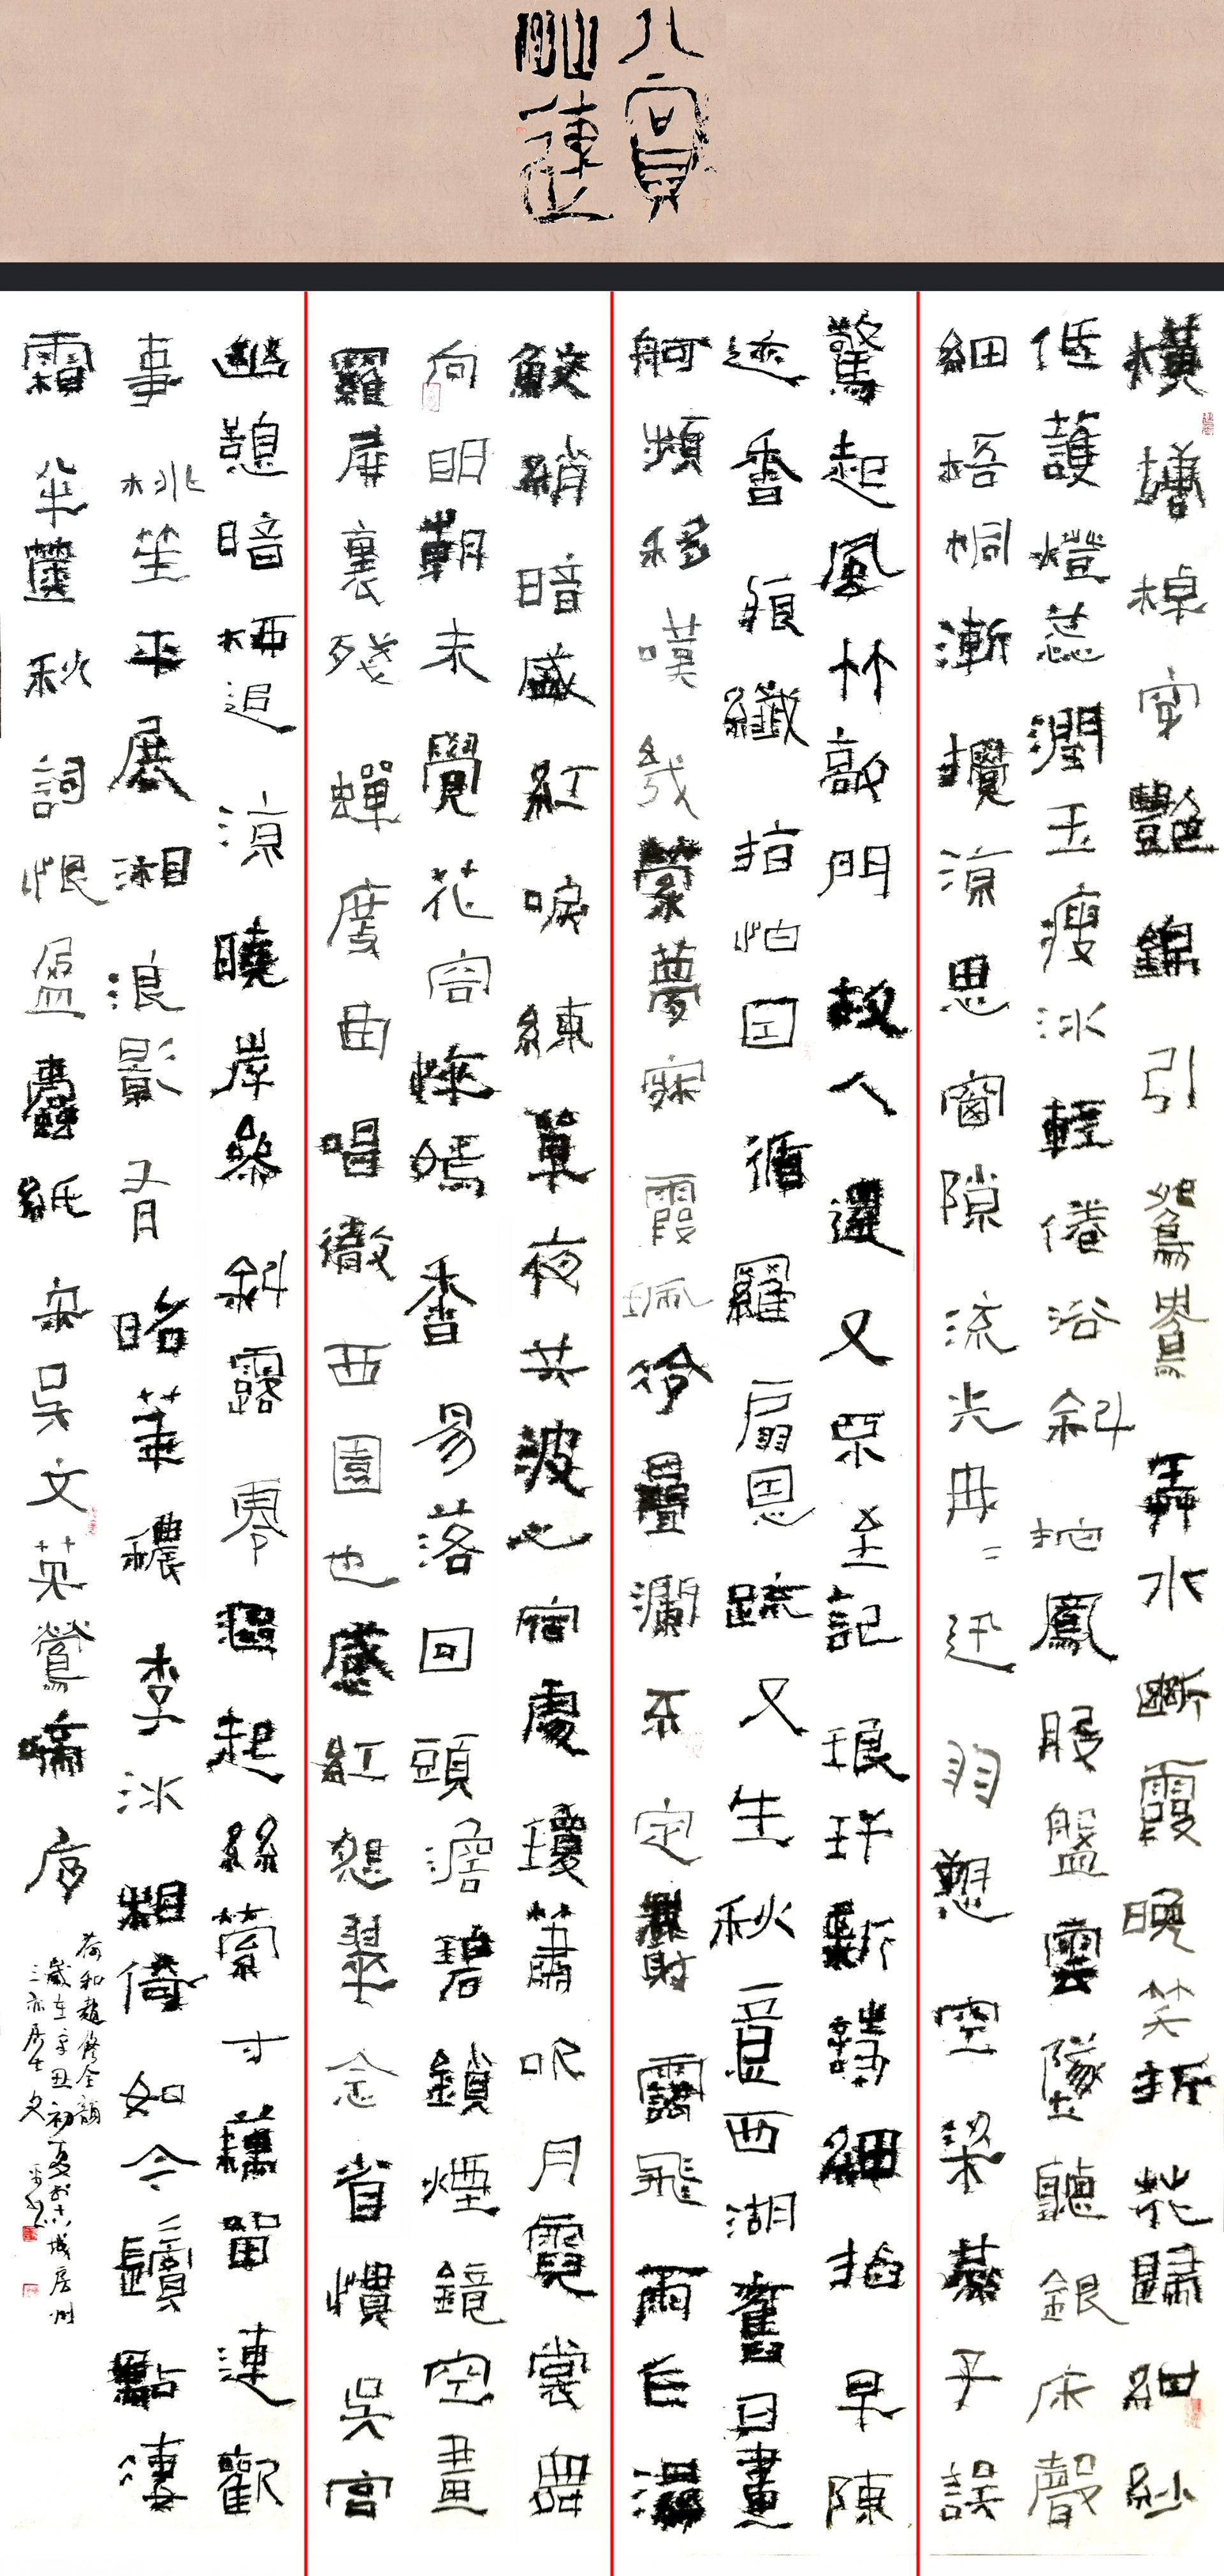 橫塘棹穿艷錦引鴛鴦弄水斷霞晚笑折花歸紺紗
低護燈蕊潤玉瘦冰輕倦浴斜拖鳳股盤雲墜聽銀床聲
細梧桐漸攪涼思窗隙流光冉冉迅羽愬空梁燕子誤
驚起風竹敲門故人還又不至記琅玕新詩細掐早陳
迹香痕纖指怕因循羅扇恩疏又生秋意西湖舊日畫
舸頻移嘆幾縈夢寐霞珮冷疊瀾不定麝靄飛雨乍濕
鮫綃暗盛紅淚練單夜共波心宿處瓊簫吹月霓裳舞
向明朝未覺花容悴嫣香易落回頭澹碧鎖煙鏡空畫
羅屏裏殘蟬度曲唱徹西園也感紅怨翠念省慣吳宮
幽憩暗柳追涼曉岸參斜露零漚起絲縈寸藕留連歡
事桃笙平展湘浪影有昭華穠李冰相倚如今鬢點淒
霜半篋秋詞恨盈蠹紙宋吳文英鶯啼序
荷和趙修全韻
歲在辛丑初夏於城房州
三亦居士